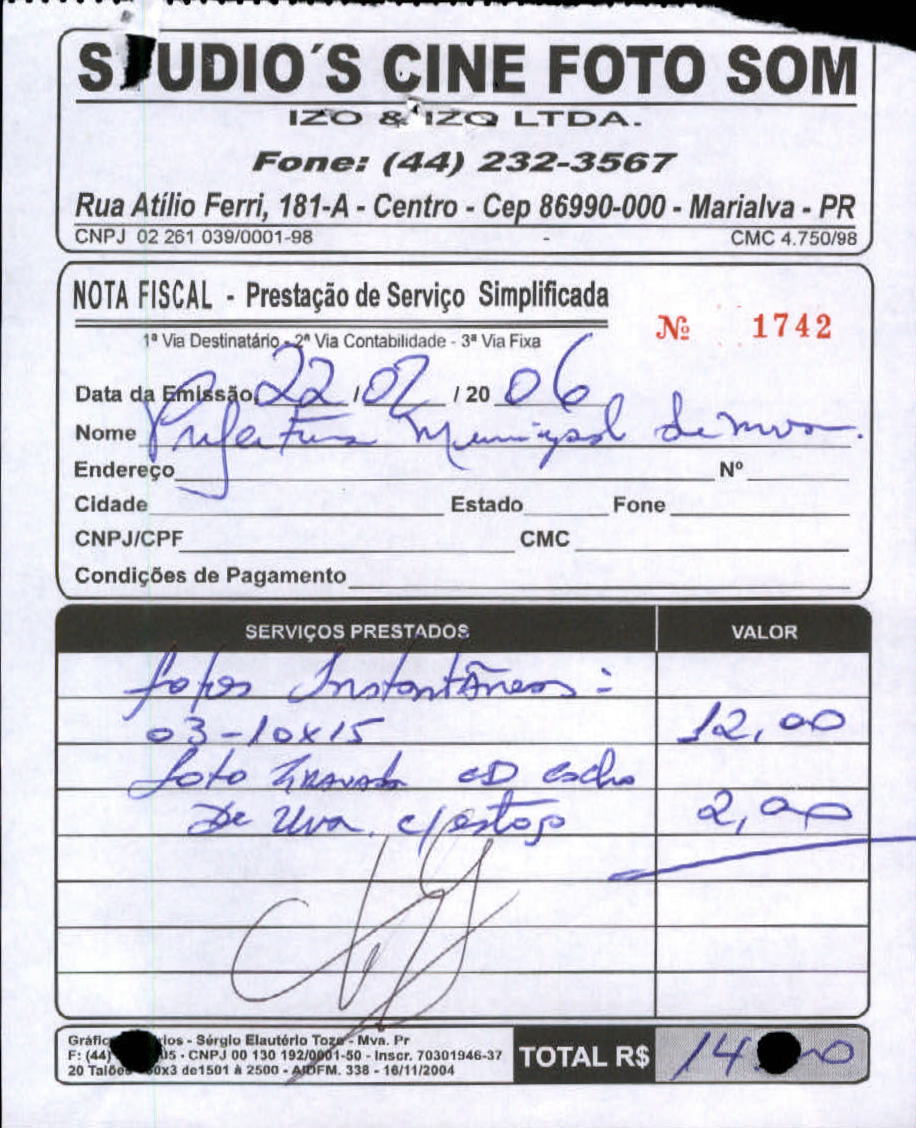 STUDIO´S CINE FOTO SOM
IZO & IZO LTDA.
Fone: (44) 232-3567
Rua Atílio Ferri, 181-A - Centro - Cep 86990-000 - Marialva - PR
CNPJ 02 261 039/0001-98 CMC 4.750/98
NOTA FISCAL - Prestação de Serviço Simplificada
Nº 1742
1ª Via Destinatário - 2ª Via Contabilidade - 3ª Via Fixa
Data da Emissão 22 / 02 / 20 06
Nome Prefeitura Municipal de mva.
Endereço Nº
Cidade Estado Fone
CNPJ/CPF CMC
Condições de Pagamento
SERVIÇOS PRESTADOS VALOR
fotos Instantâneas :
03-10x15 12,00
foto Gravada CD cacho
De Uva. c/estojo 2,00
- Sérgio Elautério Toze - Mva. Pr
F: (44) - CNPJ 00 130 192/0001-50 - Inscr. 70301946-37
20 Talões x3 de1501 à 2500 - AIDFM. 338 - 16/11/2004
TOTAL R$ 14